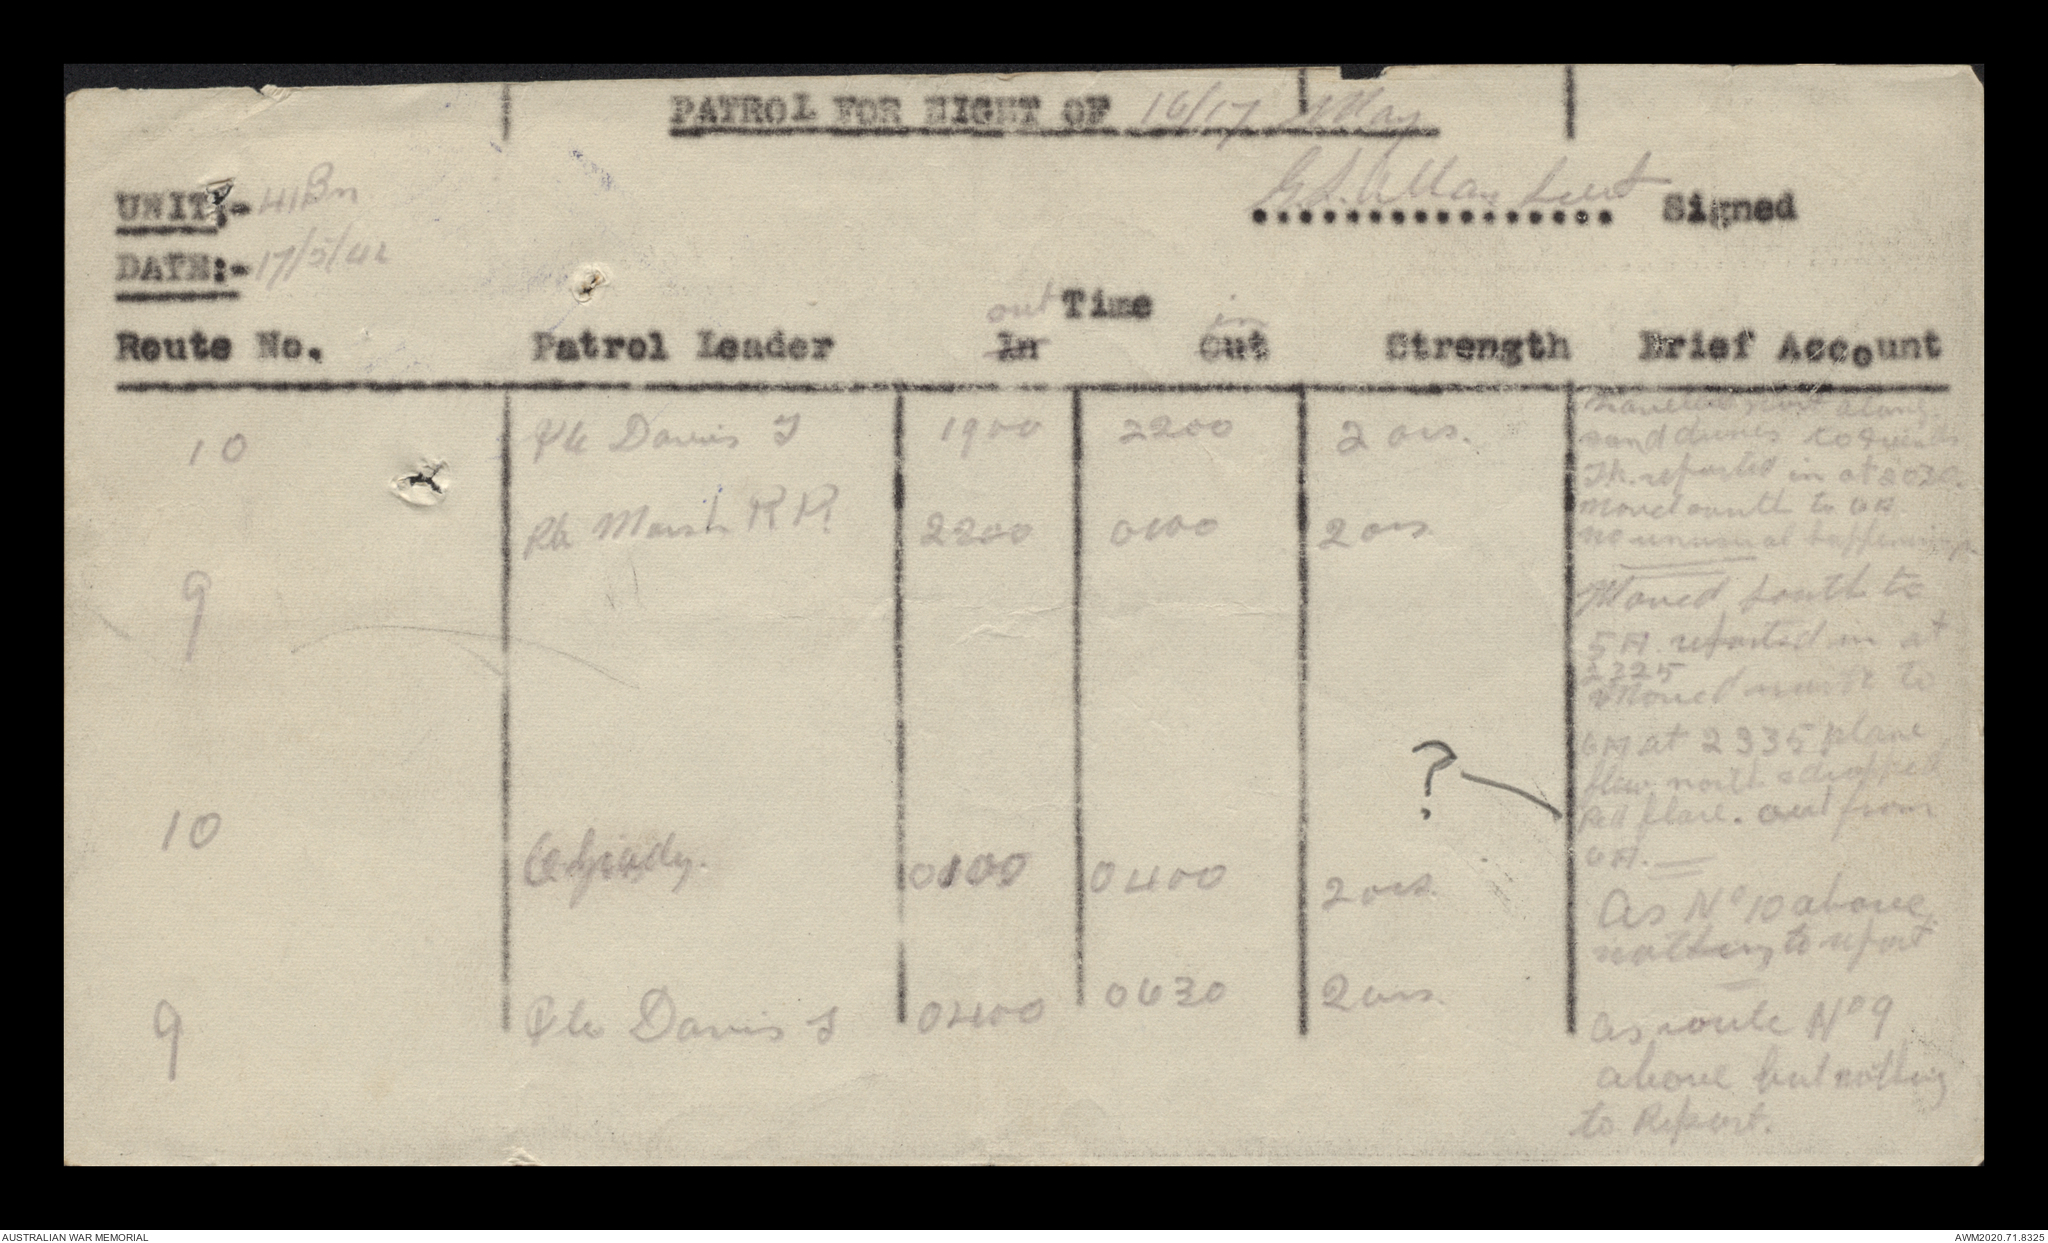 PATROL FOR NIGHT OF 16/17 May
UNIT:- 41 Bn
G.L. Allan Lieut Signed
DATE:- 17/5/42
out Time in
Route No. Patrol Leader In Out Strength Brief Account
10 Pte Davis J 1900 2200 2 ors.
Travelled north along
sand dunes to
reported in at 2030.
Moved south to 6A
no unusual happenings
Pte Marsh R R 2200 0100 2 ors
9 Moved south to
5A. reported in at
2225
Moved north to
6A at 2335 plane
flew north & dropped
?
Red flare. out from
6A.
10 O'Grady. 0100 0400 2 ors
As No 10 above,
nothing to report
9 Pte Davis J 0400 0630 2 ors.
as route No 9
above but nothing
to Report.
AUSTRALIAN WAR MEMORIAL
AWM2020.71.8325